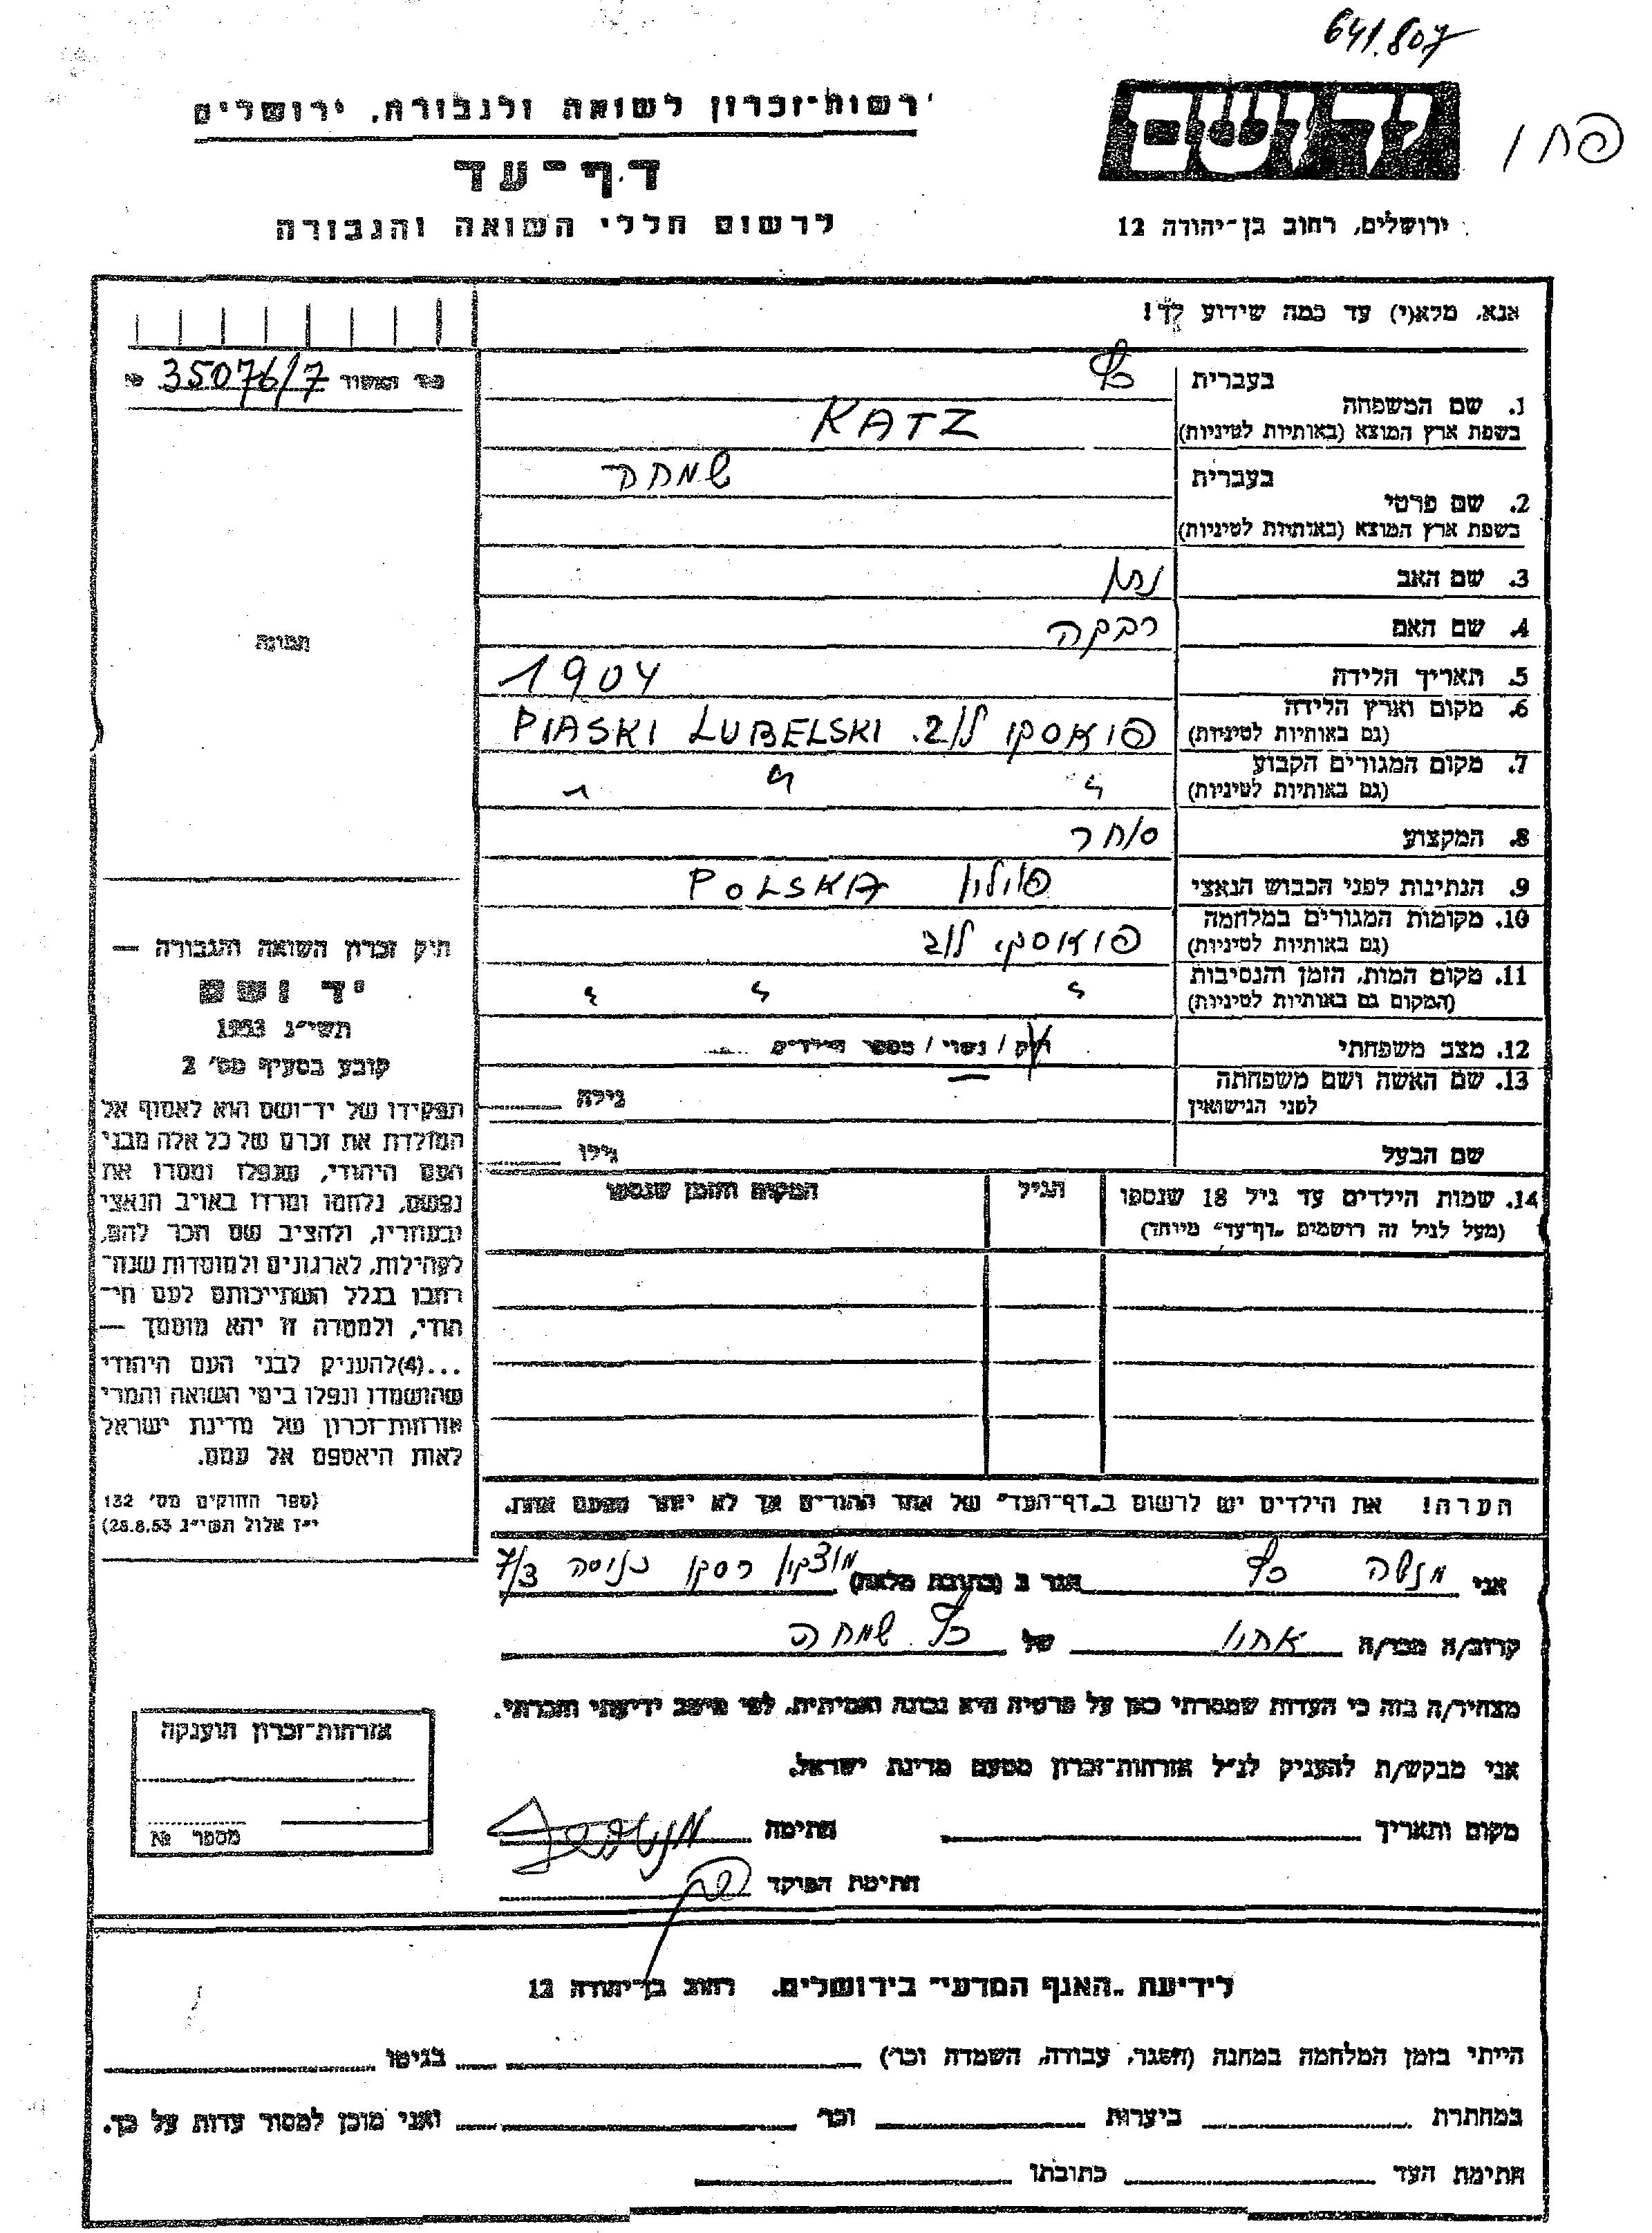 641.807
פחו
רשות־זכרון לשואה ולגבורה, ירושלים
יד ושם
דף־עד
לרשום חללי השואה והגבורה
ירושלים, רחוב בן־יהודה 12
אנא, מלא(י) עד כמה שידוע לך!
מס׳ האשור 35076/7 №
1. שם המשפחה
בעברית כץ
בשפת ארץ המוצא (באותיות לטיניות) KATZ
2. שם פרטי
בעברית שמחה
בשפת ארץ המוצא (באותיות לטיניות)
3. שם האב נתן
4. שם האם רבקה
5. תאריך הלידה 1904
6. מקום וארץ הלידה
(גם באותיות לטיניות) פיאסקי לוב. PIASKI LUBELSKI
7. מקום המגורים הקבוע
(גם באותיות לטיניות) " " "
8. המקצוע סוחר
9. הנתינות לפני הכבוש הנאצי פולין POLSKA
10. מקומות המגורים במלחמה
(גם באותיות לטיניות) פיאסקי לוב
11. מקום המות, הזמן והנסיבות
(המקום גם באותיות לטיניות) " " "
12. מצב משפחתי רוק / נשוי / מספר הילדים
13. שם האשה ושם משפחתה
לפני הנישואין
גילה
שם הבעל
גילו
14. שמות הילדים עד גיל 18 שנספו
(מעל לגיל זה רושמים „דף־עד" מיוחד)
הגיל
המקום והזמן שנספו
הערה! את הילדים יש לרשום ב„דף־העד" של אחד ההורים אך לא יותר מפעם אחת.
תמונה
חוק זכרון השואה והגבורה —
יד ושם
תשי״ג 1953
קובע בסעיף מס׳ 2
תפקידו של יד־ושם הוא לאסוף אל
המולדת את זכרם של כל אלה מבני
העם היהודי, שנפלו ומסרו את
נפשם, נלחמו ומרדו באויב הנאצי
ובעוזריו, ולהציב שם וזכר להם,
לקהילות, לארגונים ולמוסדות שנח־
רבו בגלל השתייכותם לעם הי־
הודי, ולמטרה זו יהא מוסמך —
...(4) להעניק לבני העם היהודי
שהושמדו ונפלו בימי השואה והמרי
אזרחות־זכרון של מדינת ישראל
לאות היאספם אל עמם.
(ספר החוקים מס׳ 132
י״ז אלול תשי״ג 28.8.53)
אני מנשה כץ הגר ב (כתובת מלאה) מוצקין רסקו כניסה 7/3
קרוב/ה ממי/ה אחיו של כץ שמחה
מצהיר/ה בזה כי העדות שמסרתי כאן על פרטיה היא נכונה ואמיתית, לפי מיטב ידיעתי והכרתי.
אני מבקש/ת להעניק לנ״ל אזרחות־זכרון מטעם מדינת ישראל.
מקום ותאריך חתימה
חתימת הפוקד
אזרחות־זכרון הוענקה
מספר №
לידיעת „האגף המדעי" בירושלים, רחוב בן־יהודה 12
הייתי בזמן המלחמה במחנה (הסגר, עבודה, השמדה וכו׳) בגיטו
במחתרת ביערות וכו׳ ואני מוכן למסור עדות על כך.
חתימת העד כתובתו